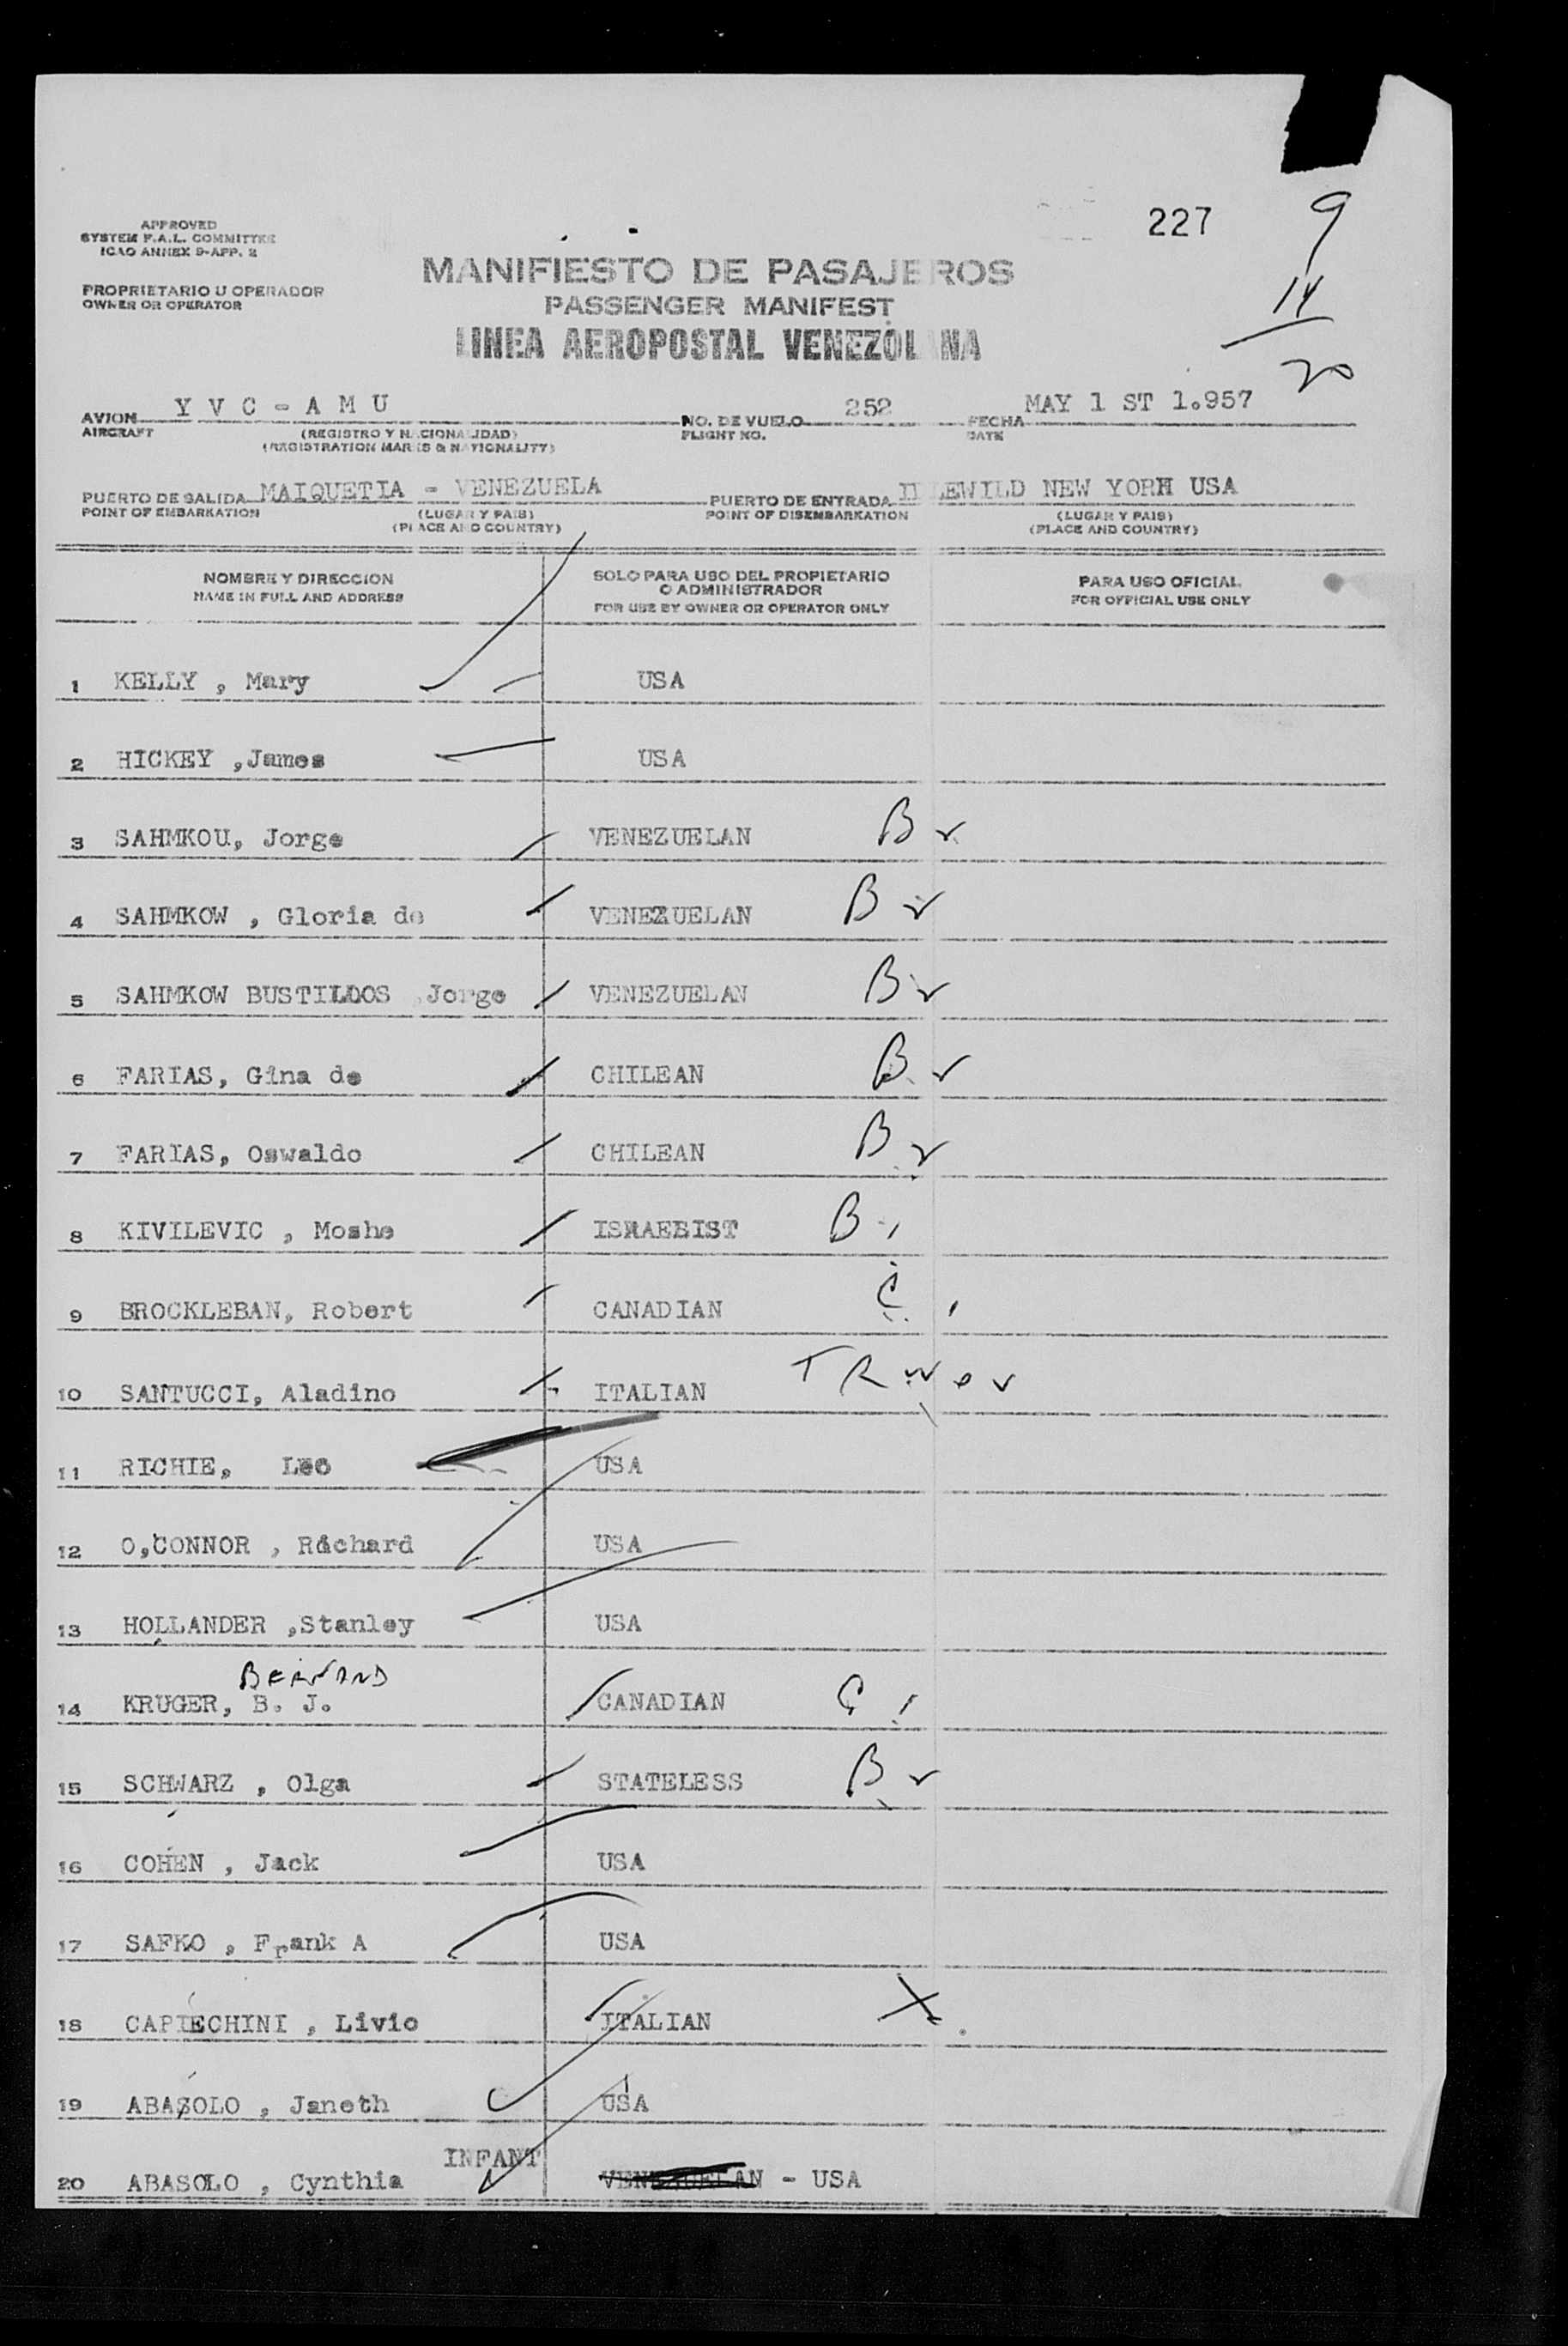 227
9
14
20
APPROVED
SYSTEM F.A.L. COMMITTEE
ICAO ANNEX 9-APP. 2
PROPRIETARIO U OPERADOR
OWNER OR OPERATOR
MANIFIESTO DE PASAJEROS
PASSENGER MANIFEST
LINEA AEROPOSTAL VENEZOLANA
AVION Y V C - A M U NO. DE VUELO 252 FECHA MAY 1 ST 1.957
AIRCRAFT (REGISTRO Y NACIONALIDAD) FLIGHT NO. DATE
(REGISTRATION MARKS & NATIONALITY)
PUERTO DE SALIDA MAIQUETIA - VENEZUELA PUERTO DE ENTRADA IDLEWILD NEW YORK USA
POINT OF EMBARKATION (LUGAR Y PAIS) POINT OF DISEMBARKATION (LUGAR Y PAIS)
(PLACE AND COUNTRY) (PLACE AND COUNTRY)
NOMBRE Y DIRECCION SOLO PARA USO DEL PROPIETARIO PARA USO OFICIAL
O ADMINISTRADOR
NAME IN FULL AND ADDRESS FOR USE BY OWNER OR OPERATOR ONLY FOR OFFICIAL USE ONLY
1 KELLY , Mary USA
2 HICKEY ,James USA
3 SAHMKOU, Jorge VENEZUELAN B
4 SAHMKOW , Gloria de VENEZUELAN B
5 SAHMKOW BUSTILLOS ,Jorge VENEZUELAN B
6 FARIAS, Gina de CHILEAN B
7 FARIAS, Oswaldo CHILEAN B
8 KIVILEVIC , Moshe ISRAELIST B
9 BROCKLEBAN, Robert CANADIAN C
10 SANTUCCI, Aladino ITALIAN
11 RICHIE, Leo USA
12 O,CONNOR , Richard USA
13 HOLLANDER ,Stanley USA
BERNARD
14 KRUGER, B. J. CANADIAN C
15 SCHWARZ , Olga STATELESS B
16 COHEN , Jack USA
17 SAFKO , Frank A USA
18 CAPIECHINI , Livio ITALIAN X
19 ABASOLO , Janeth USA
20 ABASOLO , Cynthia INFANT VENEZUELAN - USA